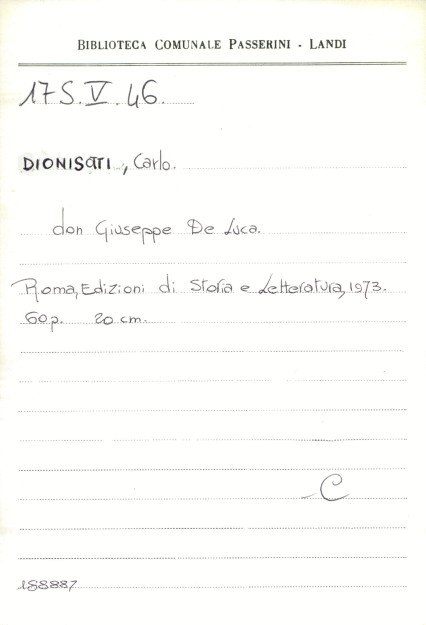 BIBLIOTECA COMUNALE PASSERINI - LANDI
17S.V.46.
DIONISOTTI, Carlo.
don Giuseppe De Luca.
Roma, Edizioni di Storia e Letteratura, 1973.
60p. 20 cm.
C
188887